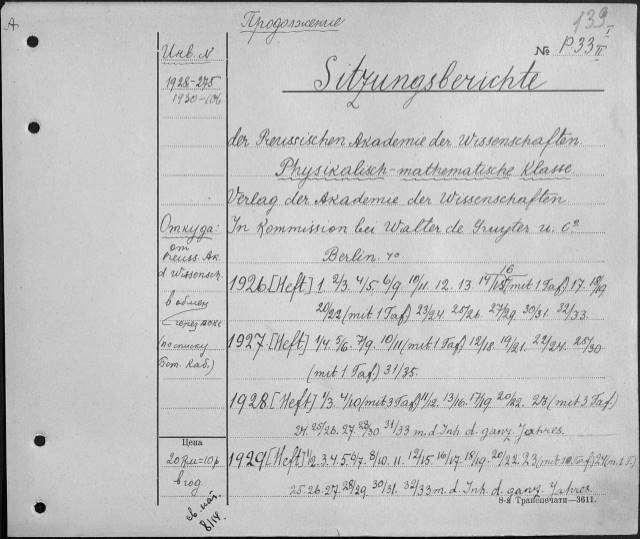 А
Продолжение
139 I
№ P.33 II
Инв. №
1928-275
1930-106
Sitzungsberichte
der Preussischen Akademie der Wissenschaften.
Physikalisch-mathematische Klasse.
Verlag der Akademie der Wissenschaften
In Kommission bei Walter de Gruyter u. Co
Berlin. 4o
Откуда:
от
Preuss. Ak.
d. Wissensch.
в обмен
через ВОКС
(по списку
Бот. Каб.)
1926 [Heft] 1. 2/3. 4/5. 6/9 10/11. 12. 13. 14/15 16 (mit 1 Taf) 17. 18/19
20/22 (mit 1 Taf) 23/24. 25/26. 27/29 30/31. 32/33.
1927. [Heft] 1/4. 5/6. 7/9. 10/11 (mit 1 Taf) 12/18. 19/21. 22/24. 25/30
(mit 1 Taf) 31/35.
1928. [Heft] 1/3. 4/10 (mit 3 Taf) 11/12. 13/16. 17/19 20/22. 23 (mit 3 Taf)
24. 25/26. 27. 28/30. 31/33 m. d. Inh. d. ganz. Jahres.
Цена
20 Rm = 10 р
в год
1929 [Heft] 1/2. 3. 4. 5. 6/7. 8/10. 11. 12/15. 16/17. 18/19. 20/22. 23 (mit Taf) 24 (m. 1 T.)
25. 26. 27. 28/29. 30/31. 32/33 m. d. Inh. d. ganz. Jahres.
8/14.
8-я Транспечати—3611.